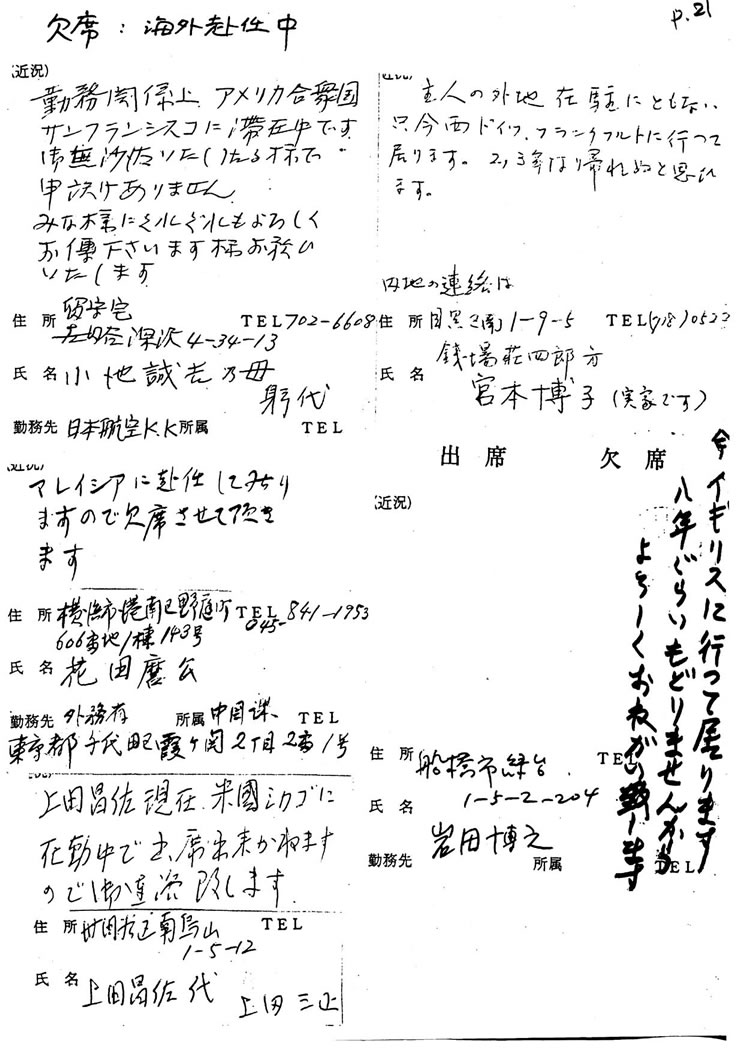 欠席：海外赴任中
P.21
(近況)
勤務関係上、アメリカ合衆国
サンフランシスコに滞在中です
御無沙汰いたし
申訳けありません
みな様にそれぞれもよろしく
お傳下さいます様お願い
いたします
住所 留守宅
深沢4-34-13
TEL 702-6608
氏名 小池誠
乃母
代
勤務先 日本航空K.K 所属 TEL
主人の外地在駐にともない、
只今西ドイツ、フランクフルトに行って
居ります。2,3年は帰れぬと思い
ます。
内地の連絡は
住所 目黒区南1-9-5 TEL(718)0522
銭場荘四郎方
氏名 宮本博子(実家です)
(近況)
マレイシアに赴任しており
ますので欠席させて頂き
ます
住所 横浜市港南区野庭町 TEL 045-841-1953
606番地1棟143号
氏名 花田麿公
勤務先 外務省 所属 中国課 TEL
東京都千代田区霞ヶ関2丁目2番1号
出席 欠席
(近況)
今イギリスに行って居ります
八年ぐらいもどりませんから
よろしくおねがい致します
住所 船橋市緑台 TEL
1-5-2-204
氏名 岩田博之
勤務先 所属 TEL
上田昌佐現在、米國シカゴに
在勤中で出席出来かねます
ので御連絡致します
住所 世田谷区南烏山 TEL
1-5-12
氏名 上田昌佐代
上田三